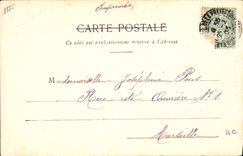 CARTE POSTALE
Ce côté est exclusivement réservé à l'adresse
Mademoiselle Joséphine Pons
Rue Cité Ouvrière N° 1
Marseille
B.C.